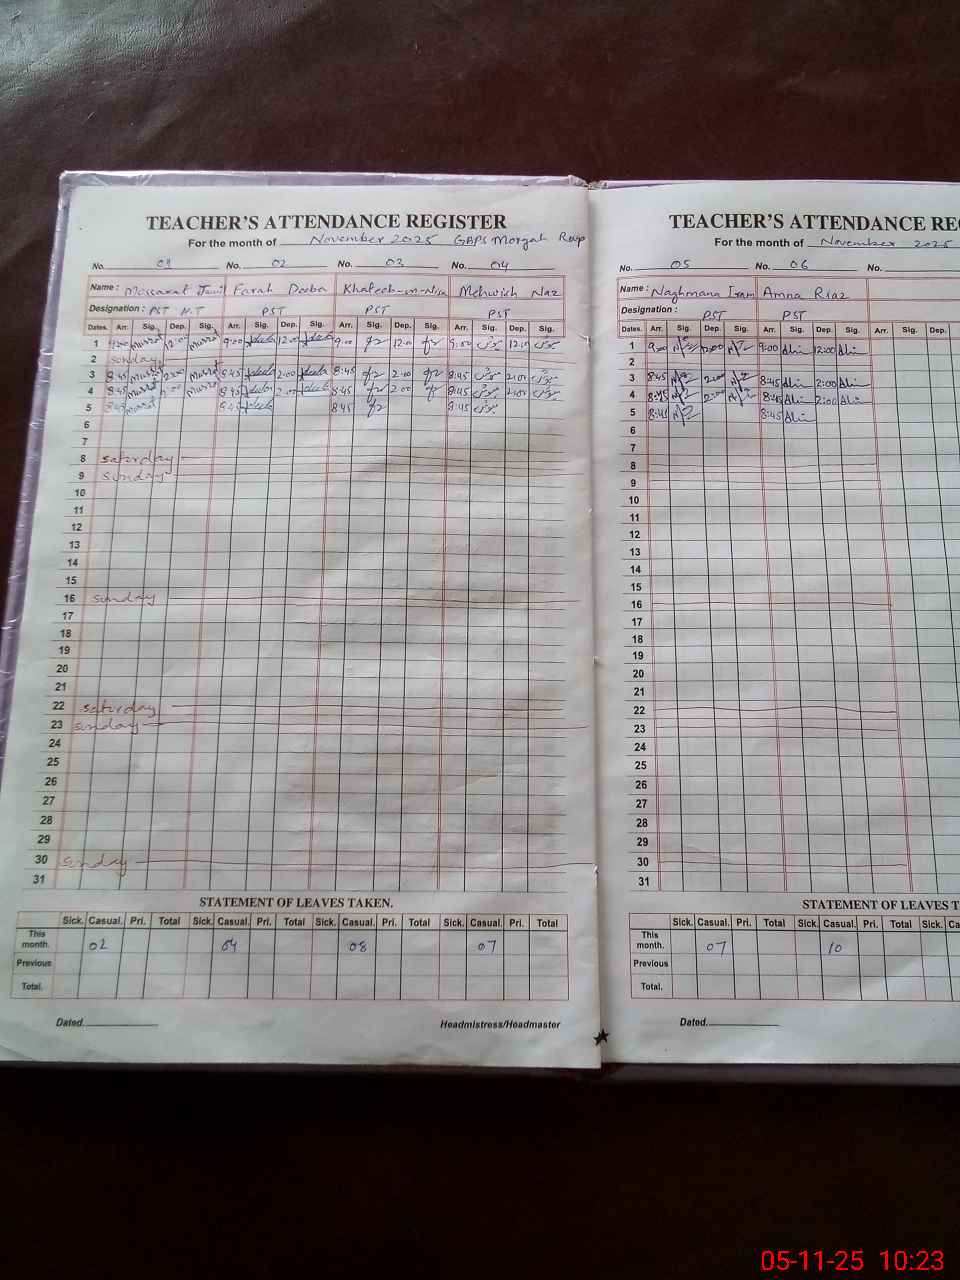 TEACHER'S ATTENDANCE REGISTER
For the month of November 2025 GBPS Morgah Rwp
No. 01 No. 02 No. 03 No. 04
Name : Mossarat Farah Deeba Khateeb-un-Nisa Mehwish Naz
Designation : PST H.T PST PST PST
Dates. Arr. Sig. Dep. Sig. Arr. Sig. Dep. Sig. Arr. Sig. Dep. Sig. Arr. Sig. Dep. Sig.
1 9:00 12:00 9:00 12:00 9:00 12:00 9:00 12:00
2 Sunday
3 8:45 2:00 8:45 2:00 8:45 2:00 8:45 2:00
4 8:45 2:00 8:45 2:00 8:45 2:00 8:45 2:00
5 8:45 8:45 8:45 8:45
6
7
8 saturday
9 sunday
10
11
12
13
14
15
16 sunday
17
18
19
20
21
22 saturday
23 sunday
24
25
26
27
28
29
30 sunday
31
STATEMENT OF LEAVES TAKEN.
Sick. Casual. Pri. Total Sick. Casual. Pri. Total Sick. Casual. Pri. Total Sick. Casual. Pri. Total
This month. 02 04 08 07
Previous
Total.
Dated. Headmistress/Headmaster
TEACHER'S ATTENDANCE REG
For the month of November 2025
No. 05 No. 06 No.
Name : Naghmana Iram Amna Riaz
Designation : PST PST
Dates. Arr. Sig. Dep. Sig. Arr. Sig. Dep. Sig. Arr. Sig. Dep.
1 9:00 12:00 9:00 12:00
2
3 8:45 2:00 8:45 2:00
4 8:45 2:00 8:45 2:00
5 8:45 8:45
6
7
8
9
10
11
12
13
14
15
16
17
18
19
20
21
22
23
24
25
26
27
28
29
30
31
STATEMENT OF LEAVES T
Sick. Casual. Pri. Total Sick. Casual. Pri. Total Sick. Ca
This month. 07 10
Previous
Total.
Dated.
05-11-25 10:23